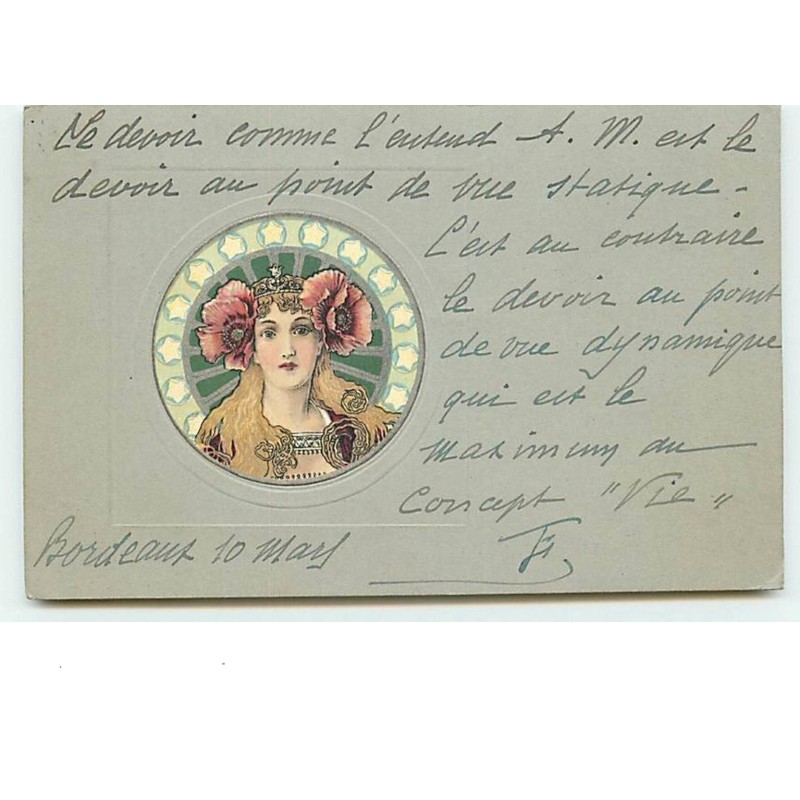 Le devoir comme l'entend A. M. est le
devoir au point de vue statique -
C'est au contraire
le devoir au point
de vue dynamique
qui est le
maximum du
Concept "Vie"
Bordeaux 10 Mars